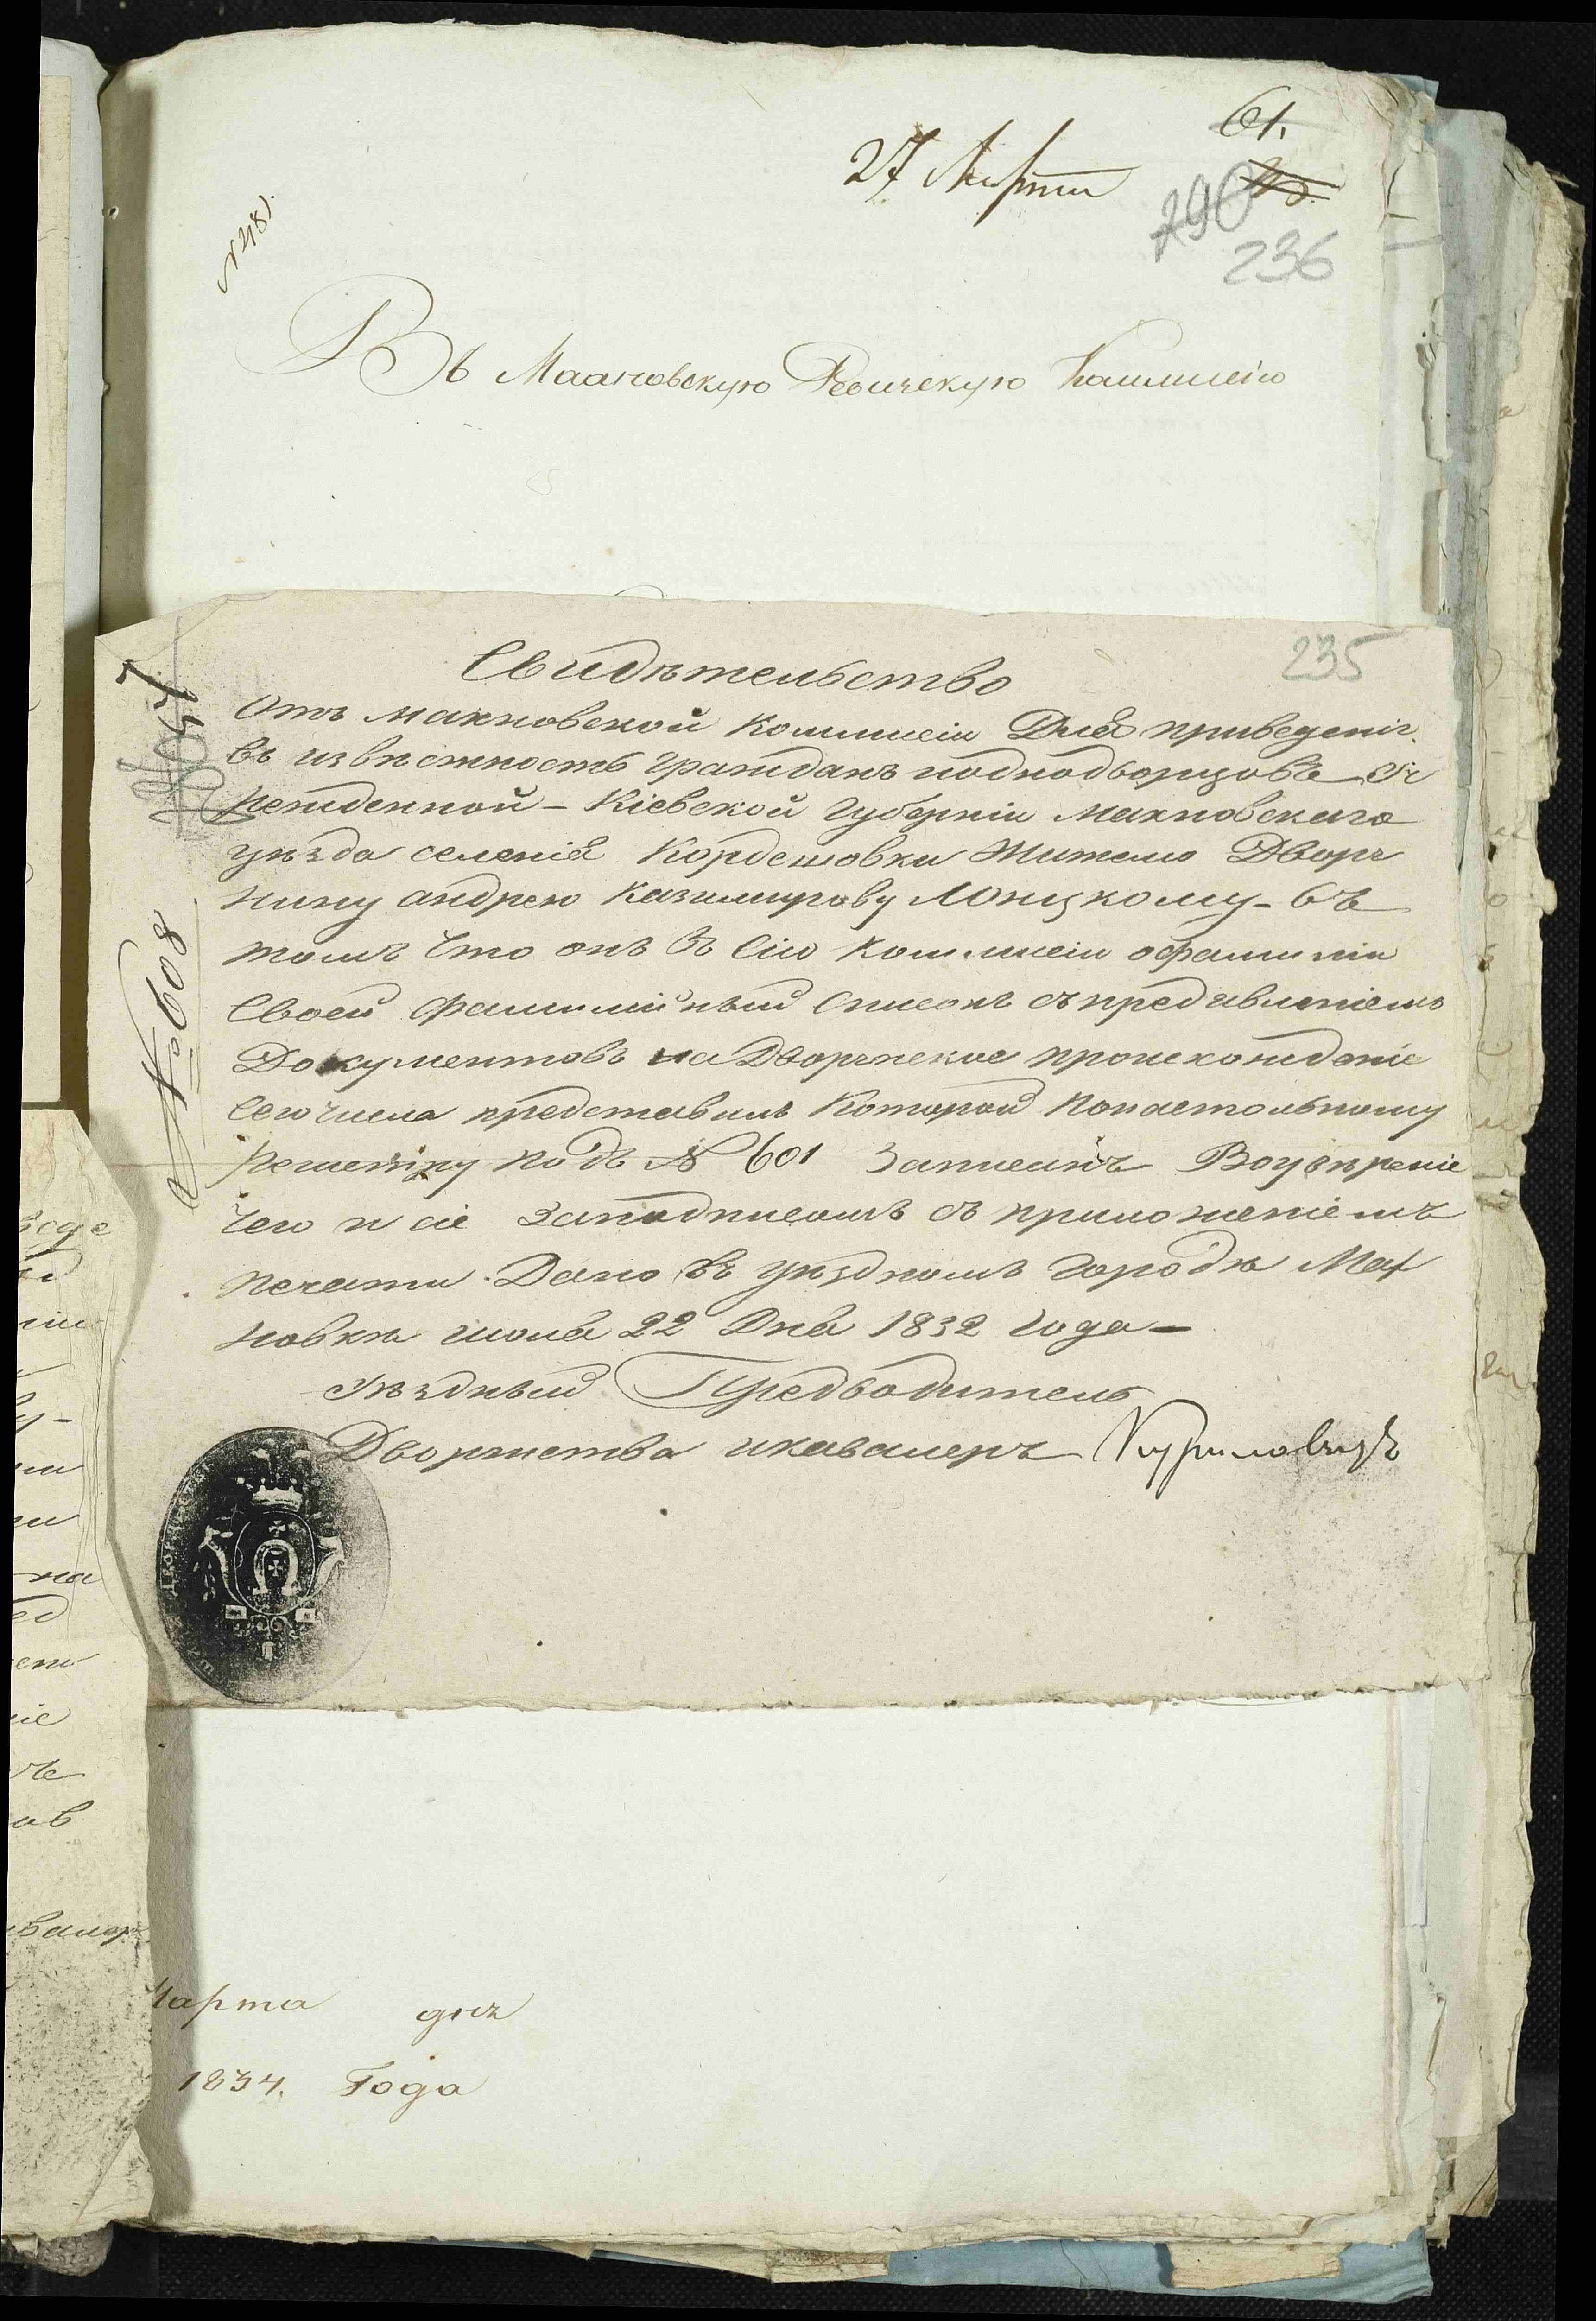 61.
27 Марта
790
236
№ 2181.
Въ Махновскую Ревизскую Коммисію
235
Свидѣтельство
Отъ махновской Коммисіи Для приведенія
въ извѣстность гражданъ иоднодворцовъ Уч
режденной – Кіевской губерніи махновскаго
уѣзда селенія Кордешовки Жителю Дворя
нину андрею казимирову Лонцкому – въ
томъ что онъ въ Сію Коммисію офамиліи
Своей фамилійный Списокъ съпредявленіемъ
Документовъ на Дворянское происхожденіе
Сего числа представилъ Которой Понастольному
Регистру Подъ № 601 Записанъ Воувѣреніе
чего и сіе Заподписомъ съ приложеніемъ
печати. Дано въ уѣздномъ городѣ Мах
новкѣ июля 22 Дня 1832 года –
Уѣздный Предводитель
Дворянства икавалеръ
№ 608
Марта дня
1834. Года